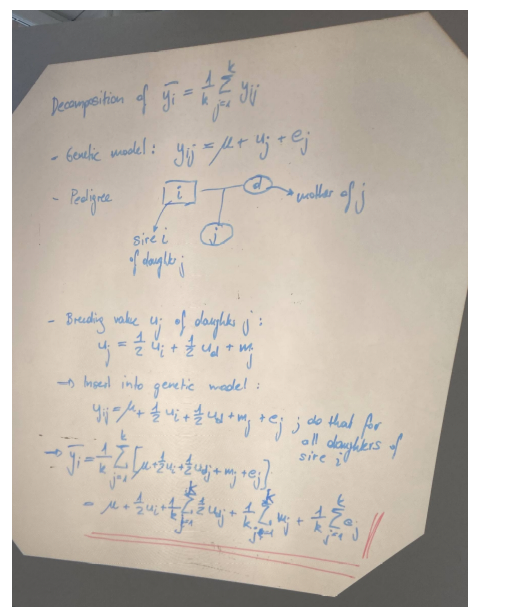 Decomposition of ȳi = 1/k Σ_{j=1}^{k} yij
- Genetic model: yij = μ + uj + ej
- Pedigree
i
d
→ mother of j
j
sire i
of daughter j
- Breeding value uj of daughter j:
uj = 1/2 ui + 1/2 ud + mj
→ Insert into genetic model:
yij = μ + 1/2 ui + 1/2 ud + mj + ej ; do that for
all daughters of
sire i
→ ȳi = 1/k Σ_{j=1}^{k} [μ + 1/2 ui + 1/2 udj + mj + ej]
= μ + 1/2 ui + 1/k Σ_{j=1}^{k} 1/2 udj + 1/k Σ_{j=1}^{k} mj + 1/k Σ_{j=1}^{k} ej